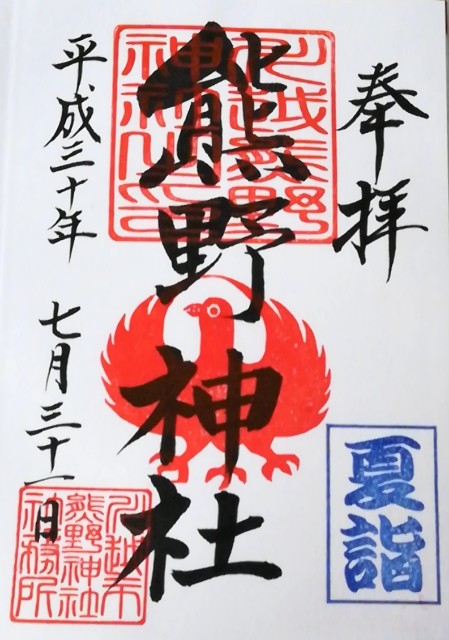 奉拝
熊野神社
平成三十年 七月三十一日
川越熊野
神社之印
夏詣
川越市
熊野神社
社務所